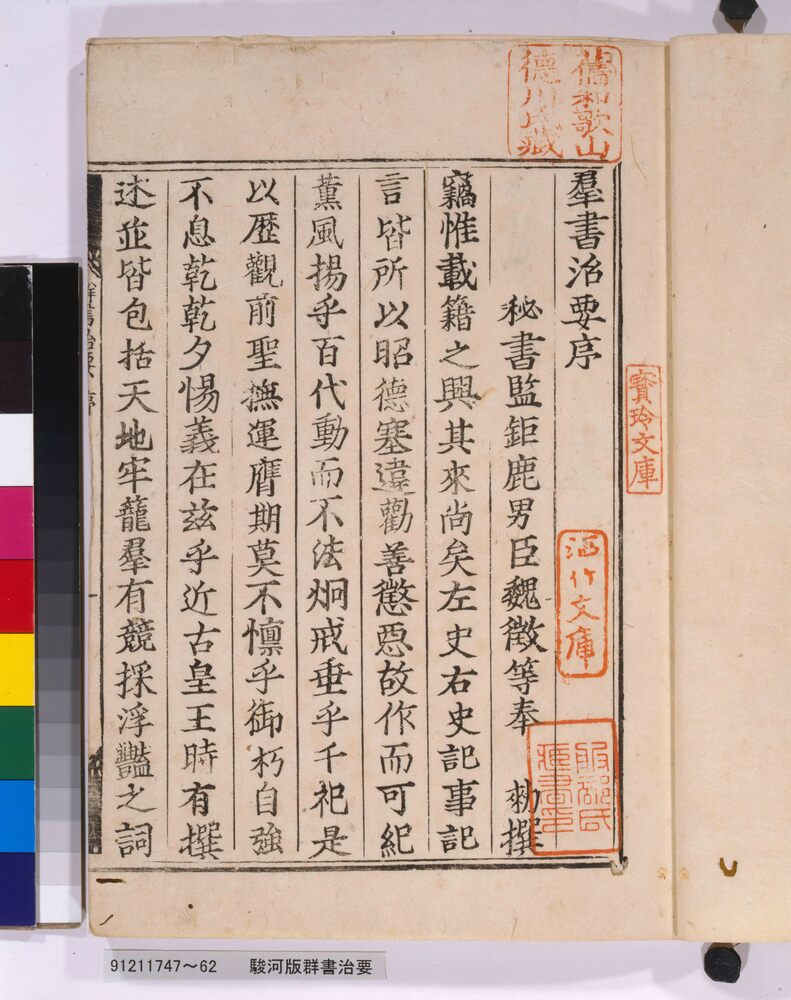 羣書治要序
秘書監鉅鹿男臣魏徵等奉　勑撰
竊惟載籍之興其來尚矣左史右史記事記
言皆所以昭德塞違勸善懲惡故作而可紀
薫風揚乎百代動而不法炯戒垂乎千祀是
以歷觀前聖撫運膺期莫不懍乎御朽自強
不息乾乾夕惕義在茲乎近古皇王時有撰
述並皆包括天地牢籠羣有競採浮豔之詞
舊和歌山
德川氏藏
寶玲文庫
酒竹文庫
服部氏
群書治要　序
91211747～62　駿河版群書治要